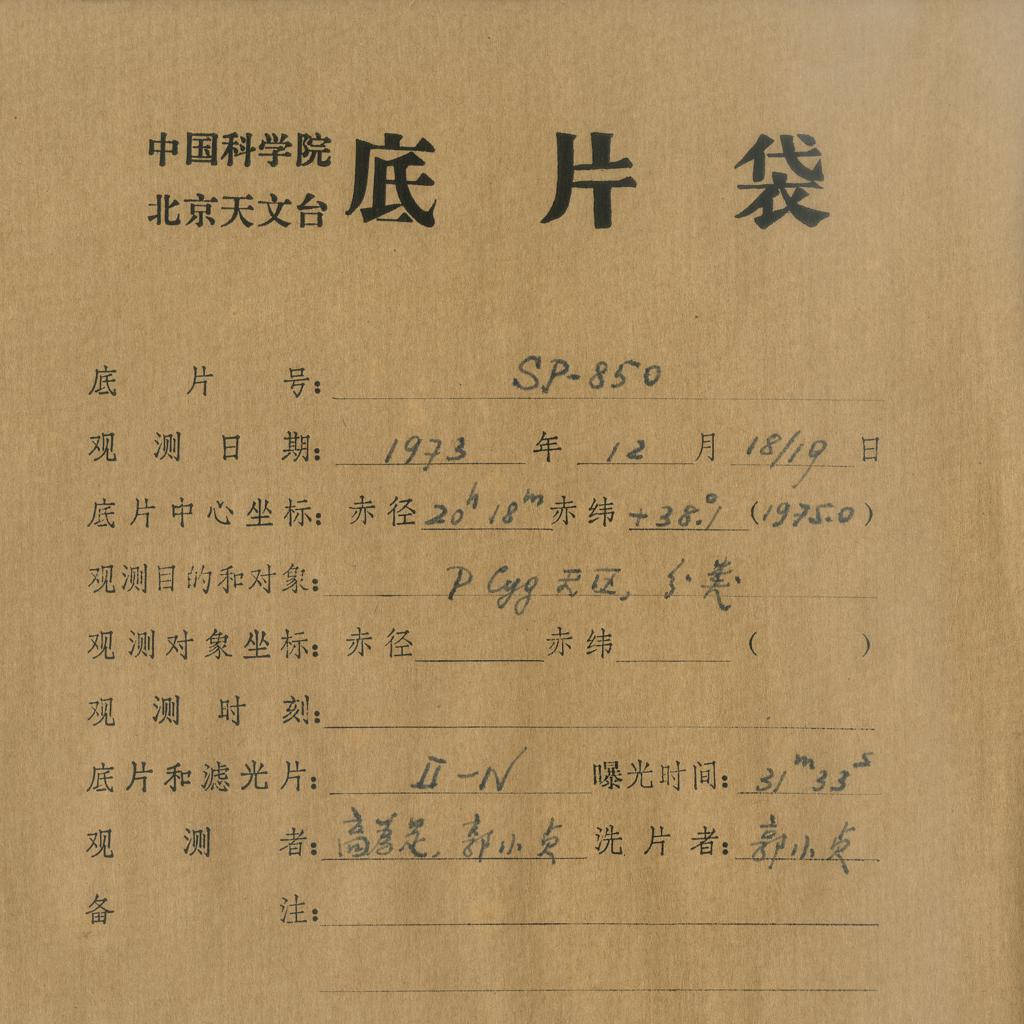 中国科学院
北京天文台
底片袋
底片号: SP-850
观测日期: 1973 年 12 月 18/19 日
底片中心坐标: 赤径 20h 18m 赤纬 +38°.1 (1975.0)
观测目的和对象: P Cyg 天区, 分类
观测对象坐标: 赤径 赤纬 ( )
观测时刻:
底片和滤光片: II-N 曝光时间: 31m 33s
观测者: 高, 郭小贞 洗片者: 郭小贞
备注: